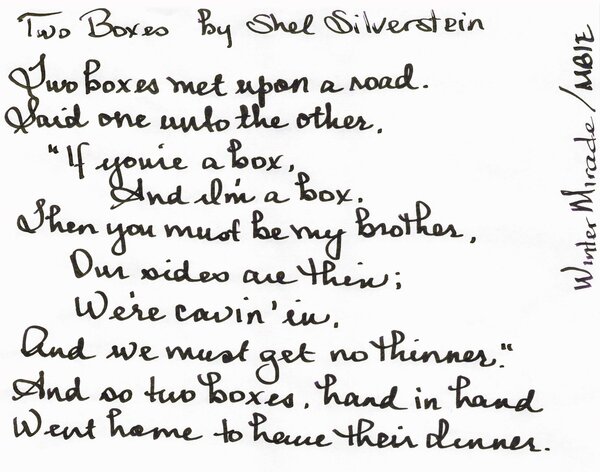 Two Boxes by Shel Silverstein
Two boxes met upon a road.
Said one unto the other,
"If you're a box,
And I'm a box.
Then you must be my brother,
Our sides are thin;
We're cavin' in,
And we must get no thinner."
And so two boxes, hand in hand
Went home to have their dinner.
Winter Miracle / MB12